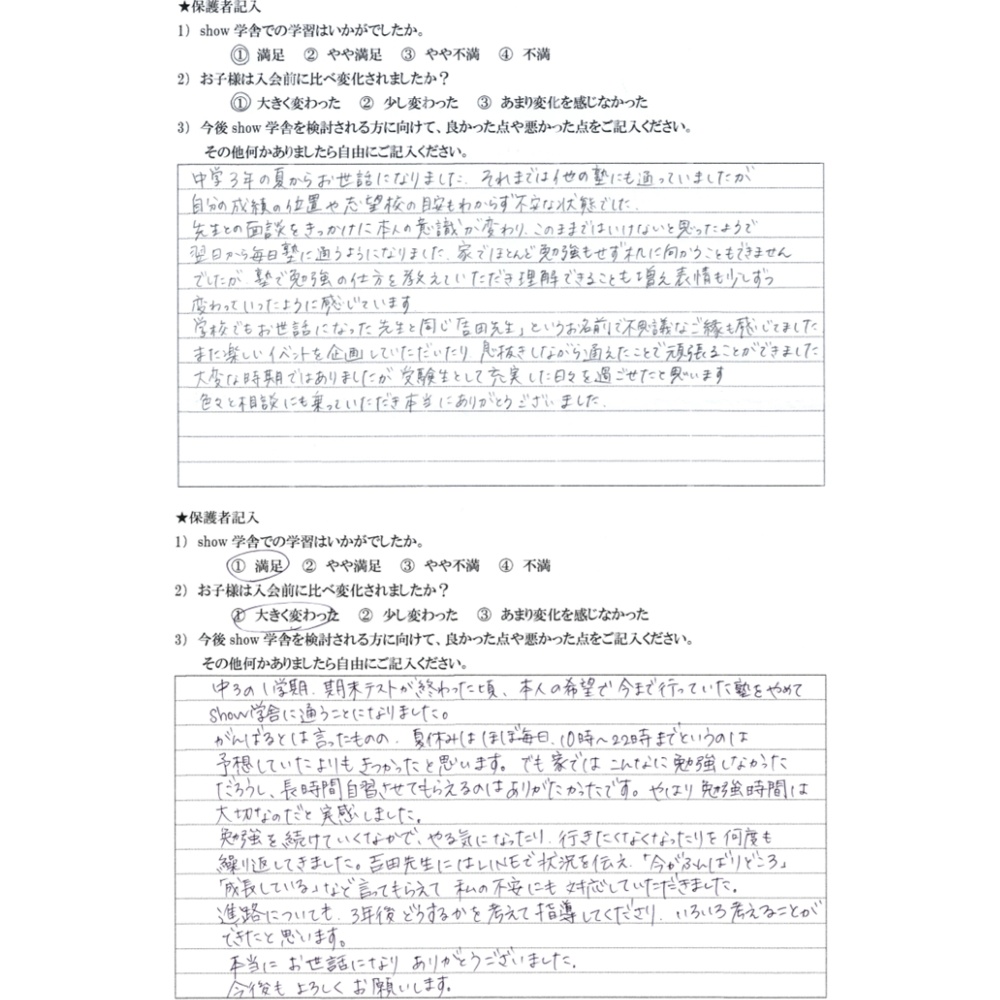 ★保護者記入
1）show 学舎での学習はいかがでしたか。
① 満足 ② やや満足 ③ やや不満 ④ 不満
2）お子様は入会前に比べ変化されましたか？
① 大きく変わった ② 少し変わった ③ あまり変化を感じなかった
3）今後 show 学舎を検討される方に向けて、良かった点や悪かった点をご記入ください。
その他何かありましたら自由にご記入ください。
中学3年の夏からお世話になりました. それまでは他の塾にも通っていましたが
自分の成績の位置や志望校の目安もわからず不安な状態でした.
先生との面談をきっかけに本人の意識が変わり、このままではいけないと思ったようで
翌日から毎日塾に通うようになりました. 家でほとんど勉強もせず机に向かうこともできません
でしたが、塾で勉強の仕方を教えていただき理解できることも増え表情も少しずつ
変わっていったように感じています
学校でもお世話になった先生と同じ「吉田先生」というお名前で不思議なご縁も感じてました
また楽しいイベントを企画していただいたり 息抜きしながら通えたことで頑張ることができました
大変な時期ではありましたが受験生として充実した日々を過ごせたと思います
色々と相談にも乗っていただき本当にありがとうございました.
★保護者記入
1）show 学舎での学習はいかがでしたか。
① 満足 ② やや満足 ③ やや不満 ④ 不満
2）お子様は入会前に比べ変化されましたか？
① 大きく変わった ② 少し変わった ③ あまり変化を感じなかった
3）今後 show 学舎を検討される方に向けて、良かった点や悪かった点をご記入ください。
その他何かありましたら自由にご記入ください。
中3の1学期. 期末テストが終わった頃、本人の希望で今まで行っていた塾をやめて
show学舎に通うことになりました。
がんばるとは言ったものの、夏休みはほぼ毎日、10時～22時までというのは
予想していたよりもきつかったと思います。でも家ではこんなに勉強しなかった
だろうし、長時間自習させてもらえるのはありがたかったです。やはり勉強時間は
大切なのだと実感しました。
勉強を続けていくなかで、やる気になったり、行きたくなくなったりを何度も
繰り返してきました。吉田先生にはLINEで状況を伝え、「今がふんばりどころ」
「成長している」など言ってもらえて 私の不安にも対応していただきました。
進路についても、3年後どうするかを考えて指導してくださり、いろいろ考えることが
できたと思います。
本当に お世話になり ありがとうございました.
今後も よろしく お願いします。